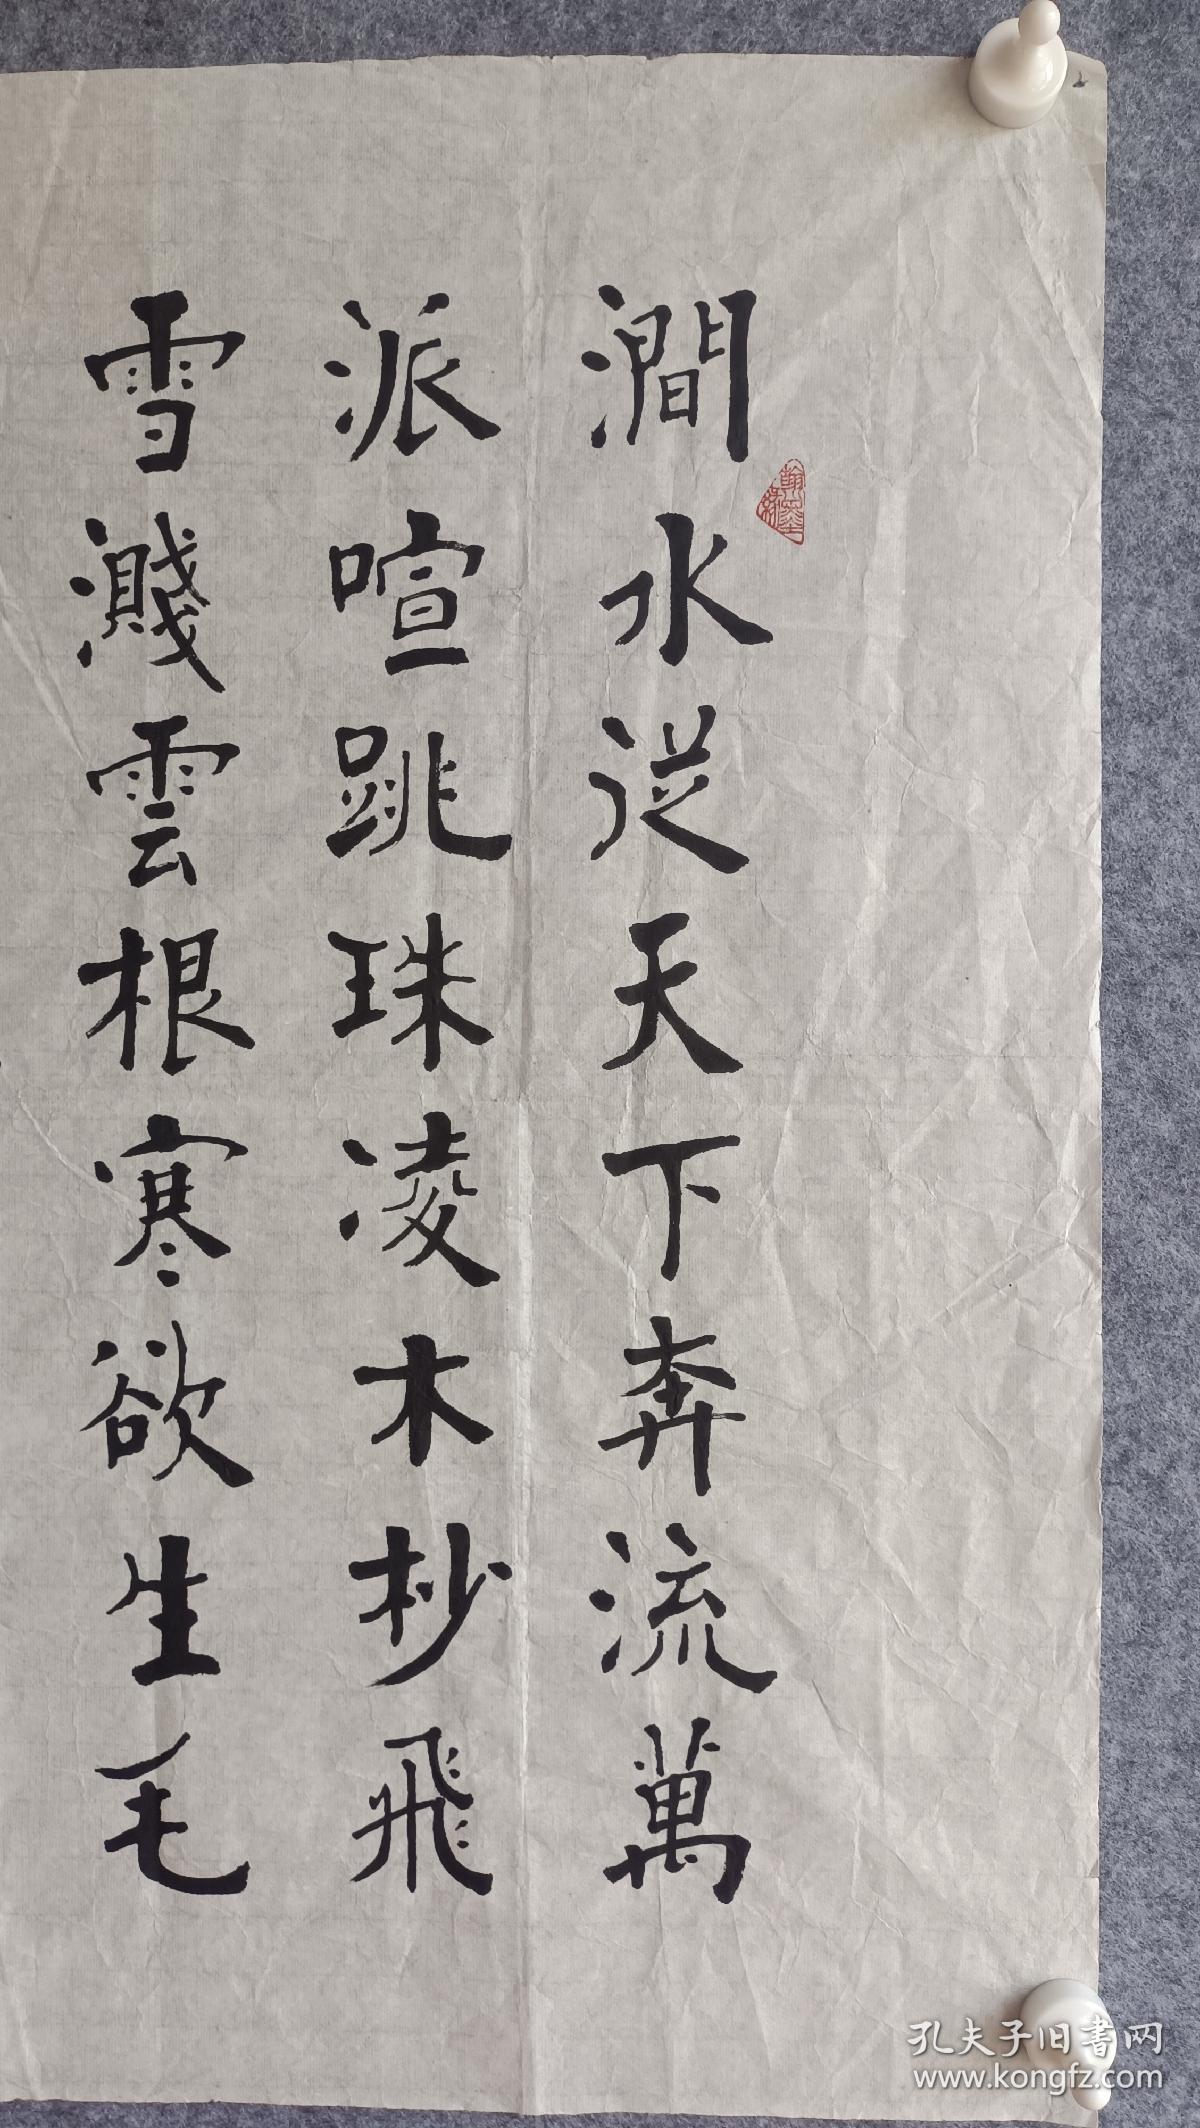 澗水從天下奔流萬
派喧跳珠凌木杪飛
雪濺雲根寒欲生毛
翰墨
孔夫子旧書网
www.kongfz.com